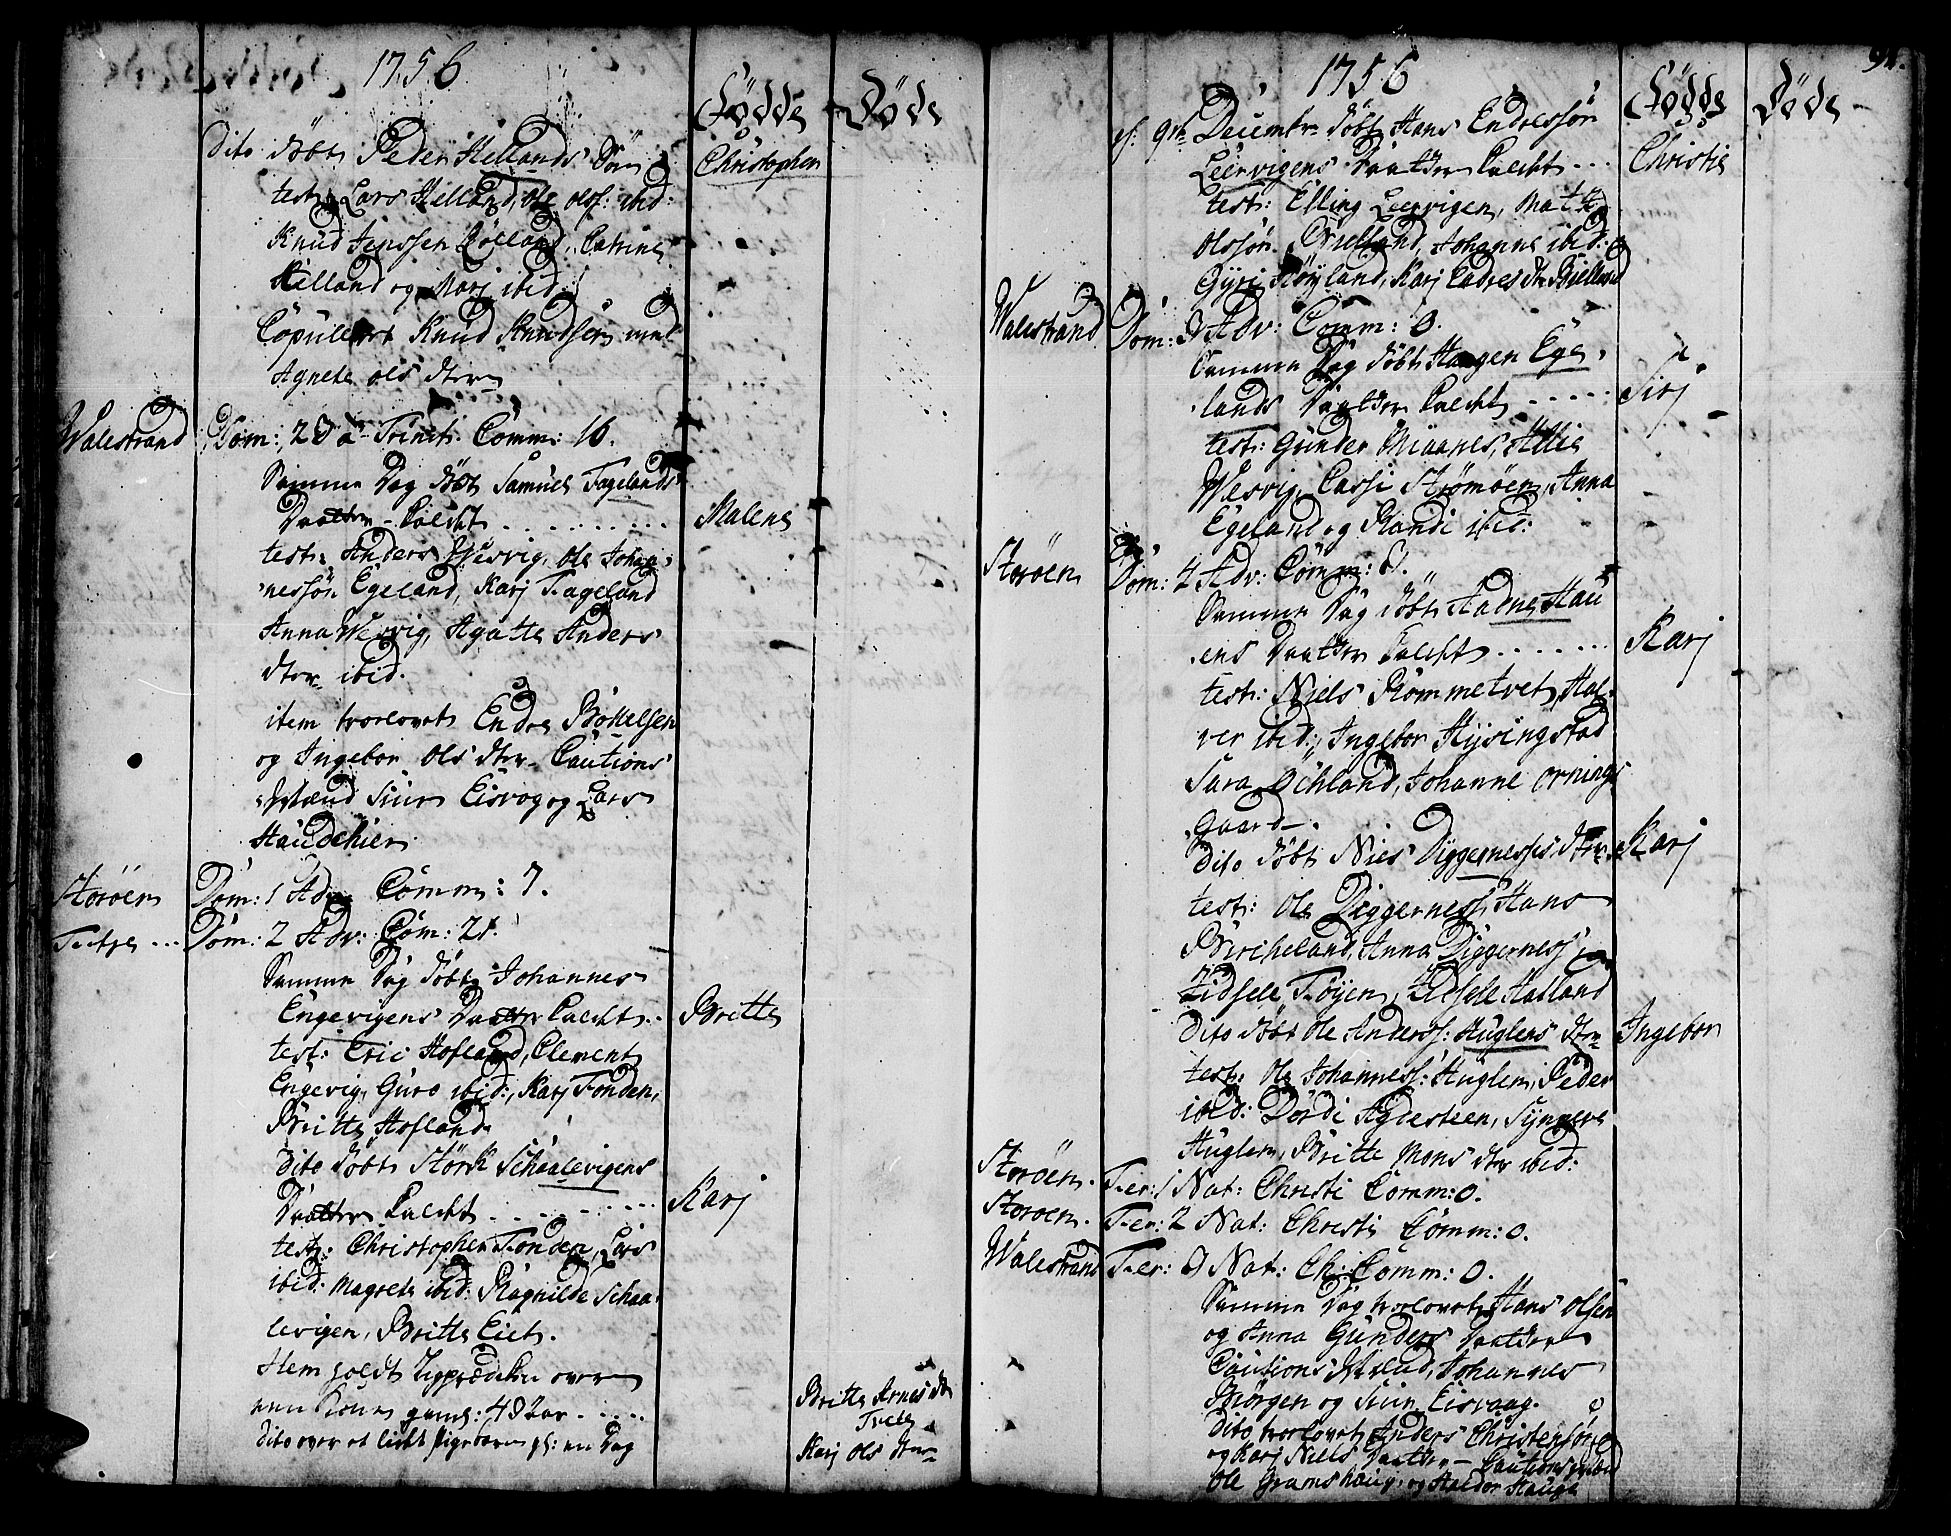 1756.
Fødde Døde
Dito døbt Peder Hellands Søn Christopher
test: Lars Helland, Ole Ols: ibid:
Knud Jenssen Lølland, Catrine
Helland og Marj ibid:
Copuleret Knud Knudsen med
Agnete Ols dter
Walestrand Dom: 23 a Trinit. Comm: 16.
Samme Dag døbt Samuel Fagelands
Daatter kaldt Malene
test: Anders Wesvig, Ole Johan-
nessøn Egeland, Karj Fageland
Anna Wesvig, Agatte Anders
dter ibid.
item trorlovet Endre Bottelsen
og Ingebor Ols dter Cautions
Mænd Siur Eisvog og Lars
Haudekier.
Storøen Dom: 1 Adv: Comm: 7.
Fitje ... Dom: 2 Adv: Com: 21.
Samme Dag døbt Johannes
Engevigens Daatter kaldt Britte
test: Eric Hofland, Clement
Engevig, Guro ibid:, Karj Fonden,
Britte Hofland.
Dito døbt Størk Schaalevigens
Daatter kaldt Karj
test: Christopher Fonden, Lars
ibid: Magrete ibid: Ragnilde Schaa-
levigen, Britte Eiet.
Item holdt Ligprædiken over
een Kone gaml: 49 aar Britte Arnes dr
Dito over et lidet Pigebarn gl: en Dag Karj Ols dter
1756 94.
Fødde Døde
d: 9de Decembr døbt Hans Endressøn
Leervigens Daatter kaldt Christie
test: Elling Leervigen, Matt
Olssøn Guelland, Johanne ibid:
Gyri Høyland, Karj Endres dr Bielland
Walestrand Dom: 3 Adv: Comm: 0.
Samme Dag døbt Haagen Ege-
lands Daatter kaldt Sirj
test: Gunder Miaanes, Allie
Wesvig, Cassi Strømøen, Anna
Egeland og Randi ibid:
Storøen Dom: 4 Adv: Comm: 0.
Samme Dag døbt Aadne Hau
ens Daatter kaldt Karj
test: Niels Rommetvet, Hal-
ver ibid:, Ingebor Hysingstad
Sara Ochland, Johanne Ornings
gaard.
Dito døbt Niels Diggernesses dter Karj
test: Ole Diggerness, Hans
Bircheland, Anna Diggerness
Zidsele Tøyen, Zidsele Hatland
Dito døbt Ole Anderss: Huglens dter Ingebor
test: Ole Johanness: Huglen, Peder
ibid: Dordi Aglesteen, Synneve
Huglen, Britte Mons dter ibid:
Storøen. Fer: 1 Nat: Christi Comm: 0.
Storøen. Fer: 2 Nat: Christi Comm: 0.
Walestrand Fer: 3 Nat: Ch: Comm: 0.
Samme Dag trorlovet Hans Olsen
og Anna Gunders Daatter
Cautions Mænd, Johannes
Børgen og Siur Eisvaag.
Dito trorlovet Anders Christensøn
og Karj Niels Daatter Cautions Mænd
Ole Gramshaug, og Haldor Hauge